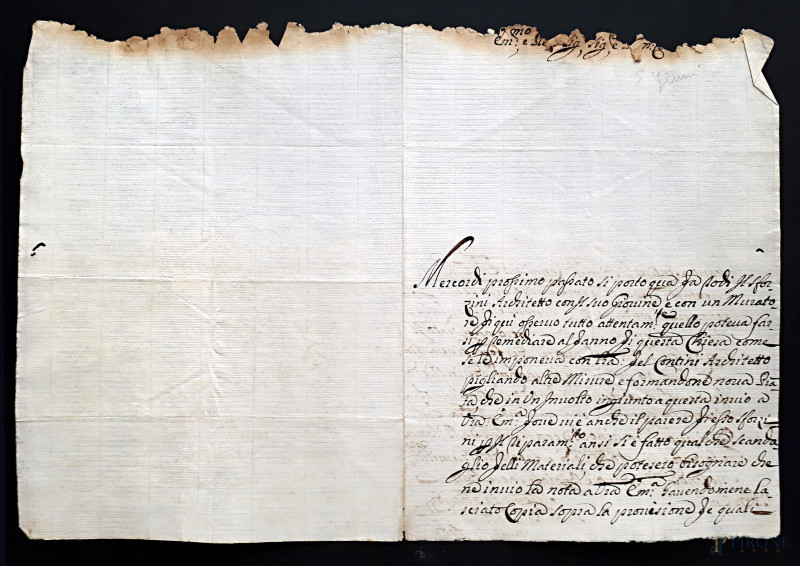 Em.mo e Sig. Sig.
Mercordi prossimo passato si portò quà da Todi Il Sfor
zini Architetto con Il suo Giovine e con un Murato
re di qui osservò tutto attentam.te quello poteva far
si p rimediare al danno di questa Chiesa come
se le imponeva con tra: del Contini Architetto
pigliando altre Misure, e formandone nova Pian
ta che in un Involto ingiunto a questa invio a
Vra Em.a dove vi è anche il parere di esso Sforzi
ni p Il riparam.to ansi si è fatto qualche scanda
glio delli Materiali, che potessero bisognare che
ne invio la nota a Vra Em.a havendomene la
sciato Copia sopra la provisione de quali